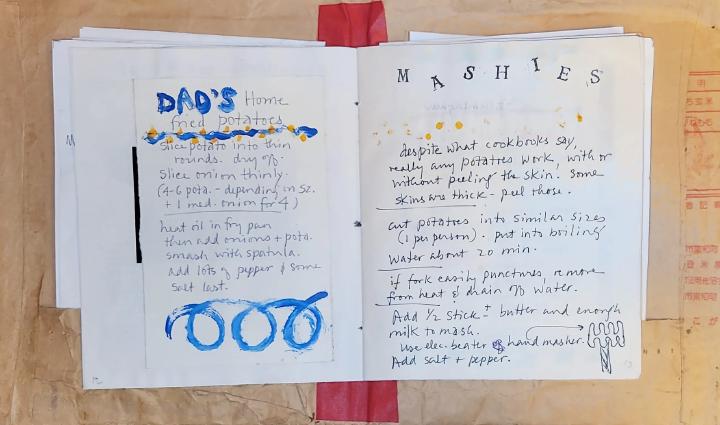 DAD'S Home
fried potatoes
slice potato into thin
rounds. dry off.
slice onion thinly.
(4-6 pota. - depending on sz.
+ 1 med. onion for 4)
heat oil in fry pan
then add onions + pota.
smash with spatula.
add lots of pepper & some
salt last.
MASHIES
despite what cookbooks say,
really any potatoes work, with or
without peeling the skin. some
skins are thick - peel those.
cut potatoes into similar sizes
(1 per person). put into boiling
water about 20 min.
if fork easily punctures, remove
from heat & drain off water.
Add 1/2 stick ± butter and enough
milk to mash.
Use elec. beater or hand masher.
Add salt + pepper.